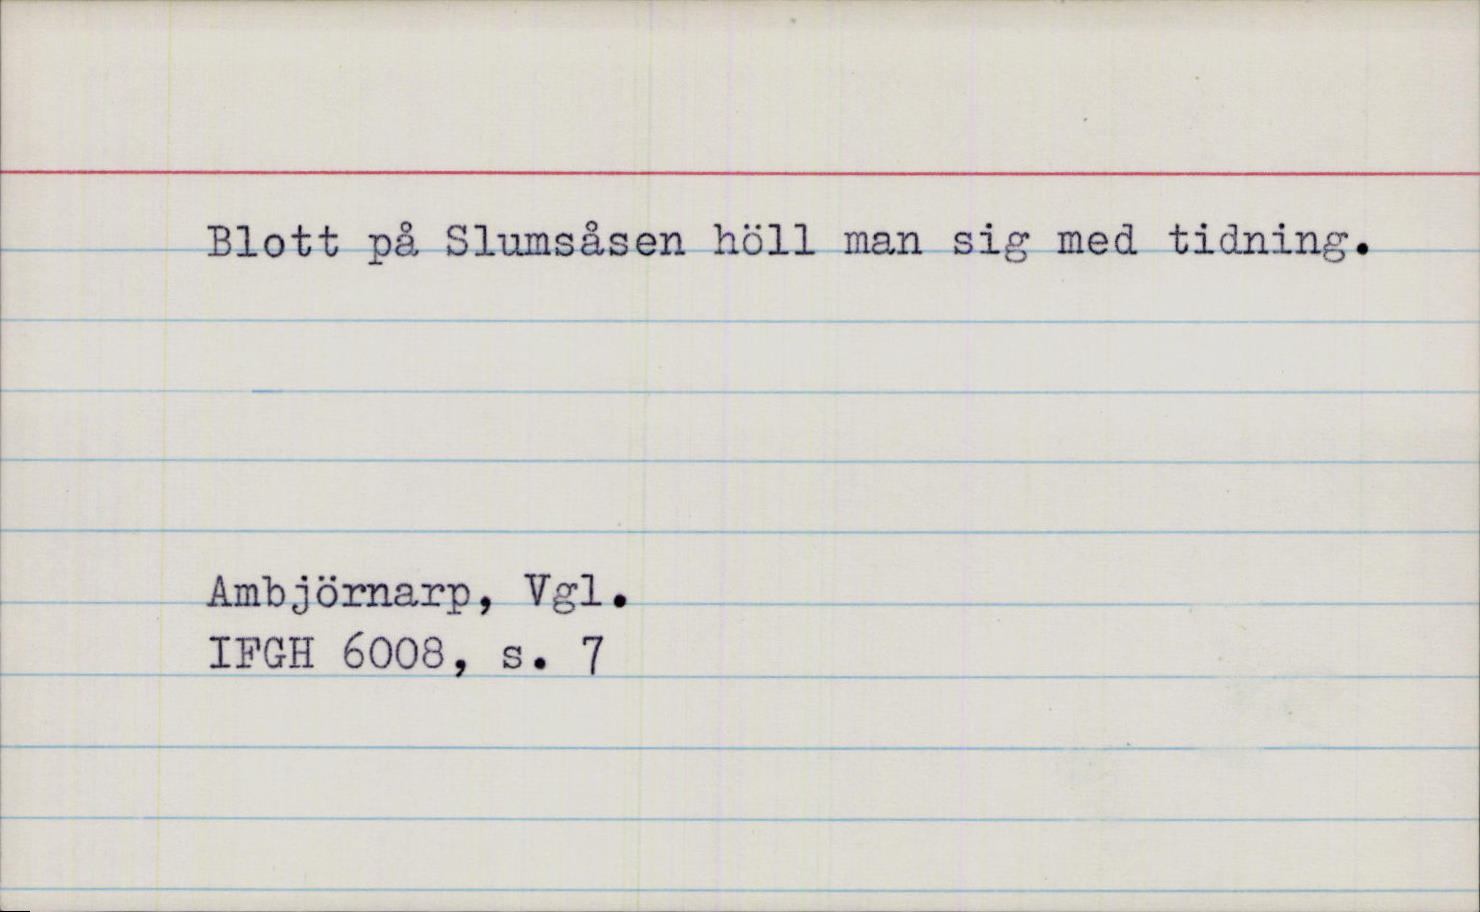 Blott på Slumsåsen höll man sig med tidning.
Ambjörnarp, Vgl.
IFGH 6008, s. 7